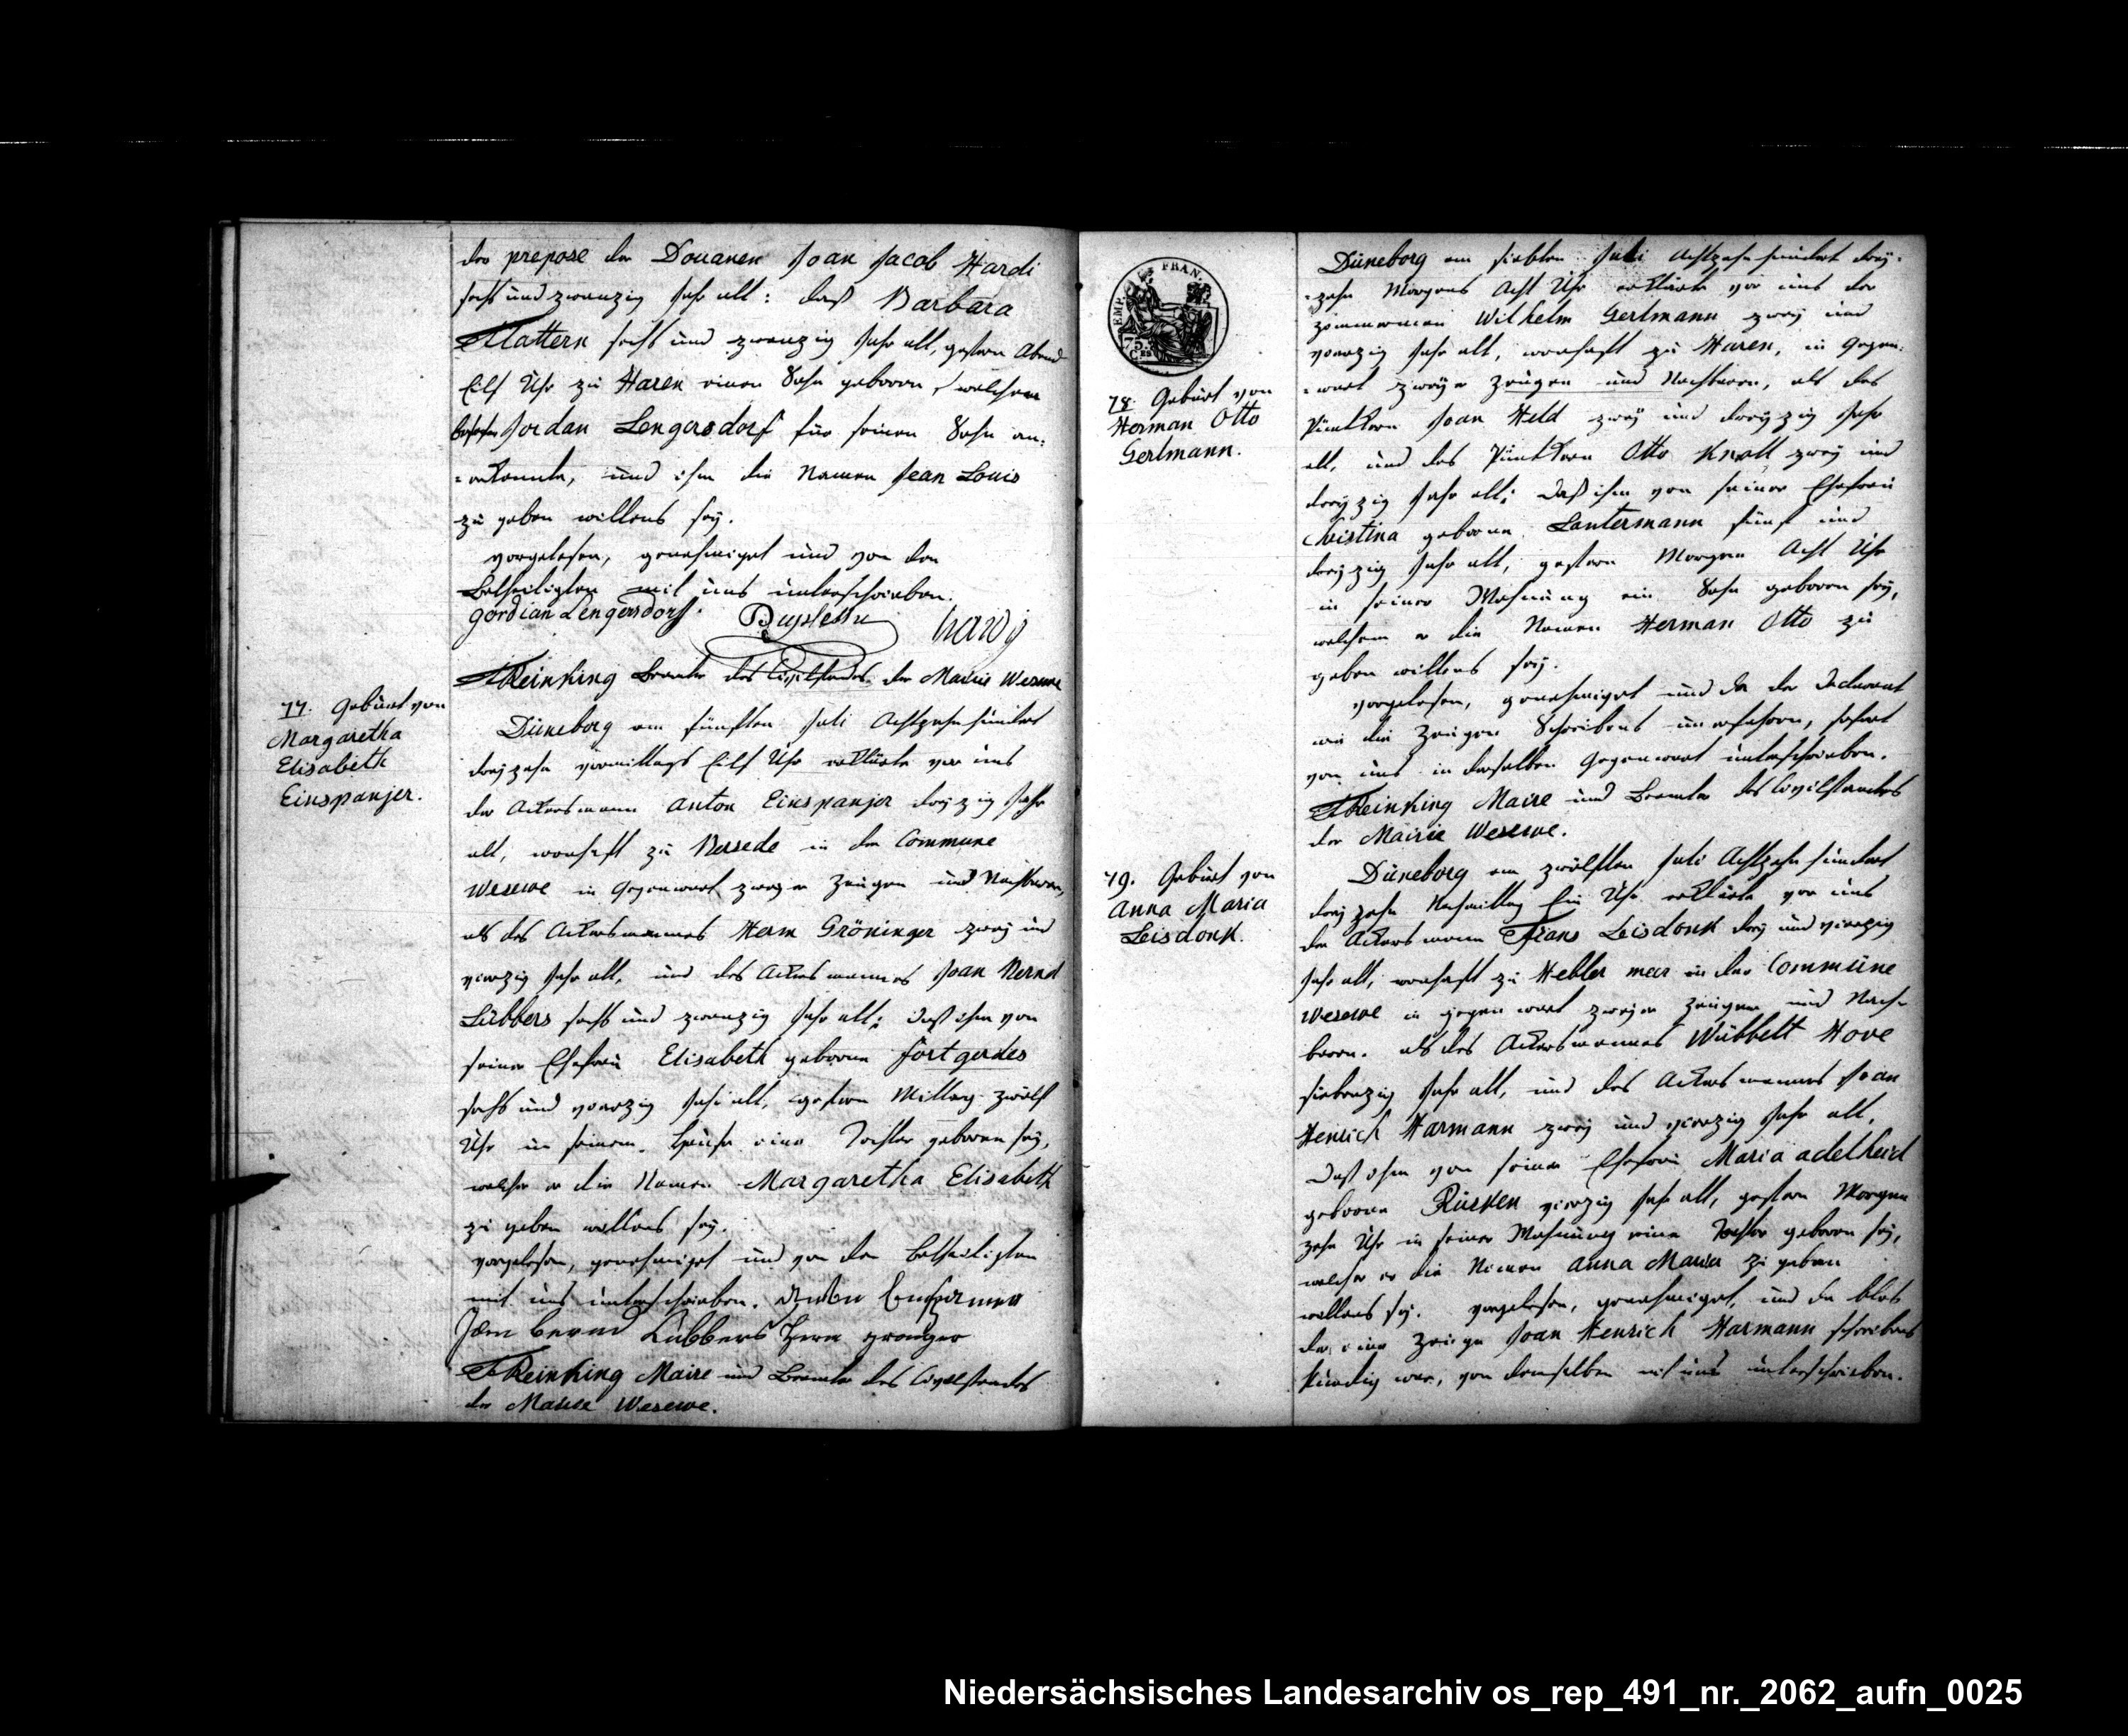 des prepose der Douanen Joan Jacob Hardi
sechs und zwanzig Jahr alt: daß Barbara
Mattern sechs und zwanzig Jahr alt, gestern Abend
Eilf Uhr zu Haren einen Sohn geboren, welchen
Jordan Lengersdorf für seinen Sohn an-
=erkannte, und ihm die Namen Jean Louis
zu geben willens sey.
vorgelesen, genehmiget und von den
Betheiligten mit uns unterschrieben.
Gordian Lengersdorf. hardj
Reinking Beamter des Civilstandes der Mairie Wesuwe
77. Geburt von
Margaretha
Elisabeth
Einspanjer.
Düneborg am fünften Juli Achtzehnhundert
dreyzehn vormittags Eilf Uhr erklärte vor uns
der Ackersmann Anton Einspanjer dreyzig Jahr
alt, wonhaft zu Versede in der Commune
Wesuwe in Gegenwart zweyer Zeugen und Nachbaren,
als des Ackersmannes Herm Gröninger zwey und
vierzig Jahr alt, und des Ackersmannes Joan Bernd
Lübbers sechs und zwanzig Jahr alt; daß ihm von
seiner Ehefrau Elisabeth geborne Fortgerdes
sechs und vierzig Jahr alt, gestern Mittag zwölf
Uhr in seinem Hause eine Tochter geboren sey,
welcher er die Namen Margaretha Elisabeth
zu geben willens sey.
vorgelesen, genehmiget und von den Betheiligten
mit uns unterschrieben.
Jan bernd Lübbers Herm
Reinking Maire und Beamter des Civilstandes
der Mairie Wesuwe.
EMP. FRAN.
75.
C.ES
78. Geburt von
Herman Otto
Gerlmann.
Düneborg am siebten Juli Achtzehnhundert drey-
=zehn Morgens Acht Uhr erklärte vor uns der
Zimmermann Wilhelm Gerlmann zwey und
vierzig Jahr alt, wonhaft zu Haren, in Gegen-
=wart zweyer Zeugen und Nachbaren, als des
Püntkers Joan Held zwey und dreyzig Jahr
alt, und des Püntkers Otto Knoll zwey und
dreyzig Jahr alt; daß ihm von seiner Ehefrau
Christina geborne Lantermann fünf und
dreyzig Jahr alt, gestern Morgen Acht Uhr
in seiner Wohnung ein Sohn geboren sey,
welchem er die Namen Herman Otto zu
geben willens sey.
vorgelesen, genehmiget und da der Declarant
wie die Zeugen Schreibens unerfahren, sofort
von uns in derselben Gegenwart unterschrieben.
Reinking Maire und Beamter des Civilstandes
der Mairie Wesuwe.
79. Geburt von
Anna Maria
Leisdonk.
Düneborg am zwölften Juli Achtzehnhundert
dreyzehn Nachmittag Ein Uhr erklärte vor uns
der Ackersmann Frans Leisdonk drey und vierzig
Jahr alt, wonhaft zu Hebler meer in der Commüne
Wesuwe in gegenwart zweyer Zeugen und Nach-
baren. als des Ackersmannes Wübbelt Hove
siebenzig Jahr alt, und des Ackersmannes Joan
Henrich Harmann zwey und vierzig Jahr alt,
daß ihm von seiner Ehefrau Maria adelheid
geborne Rüsken vierzig Jahr alt, gestern Morgen
zehn Uhr in seiner Wohnung eine Tochter geboren sey,
welcher er die Namen Anna Maria zu geben
willens sey. vorgelesen, genehmiget, und da blos
der eine Zeuge Joan Henrich Harmann schreibens
kundig war, von demselben mit uns unterschrieben.
Niedersächsisches Landesarchiv os_rep_491_nr._2062_aufn_0025